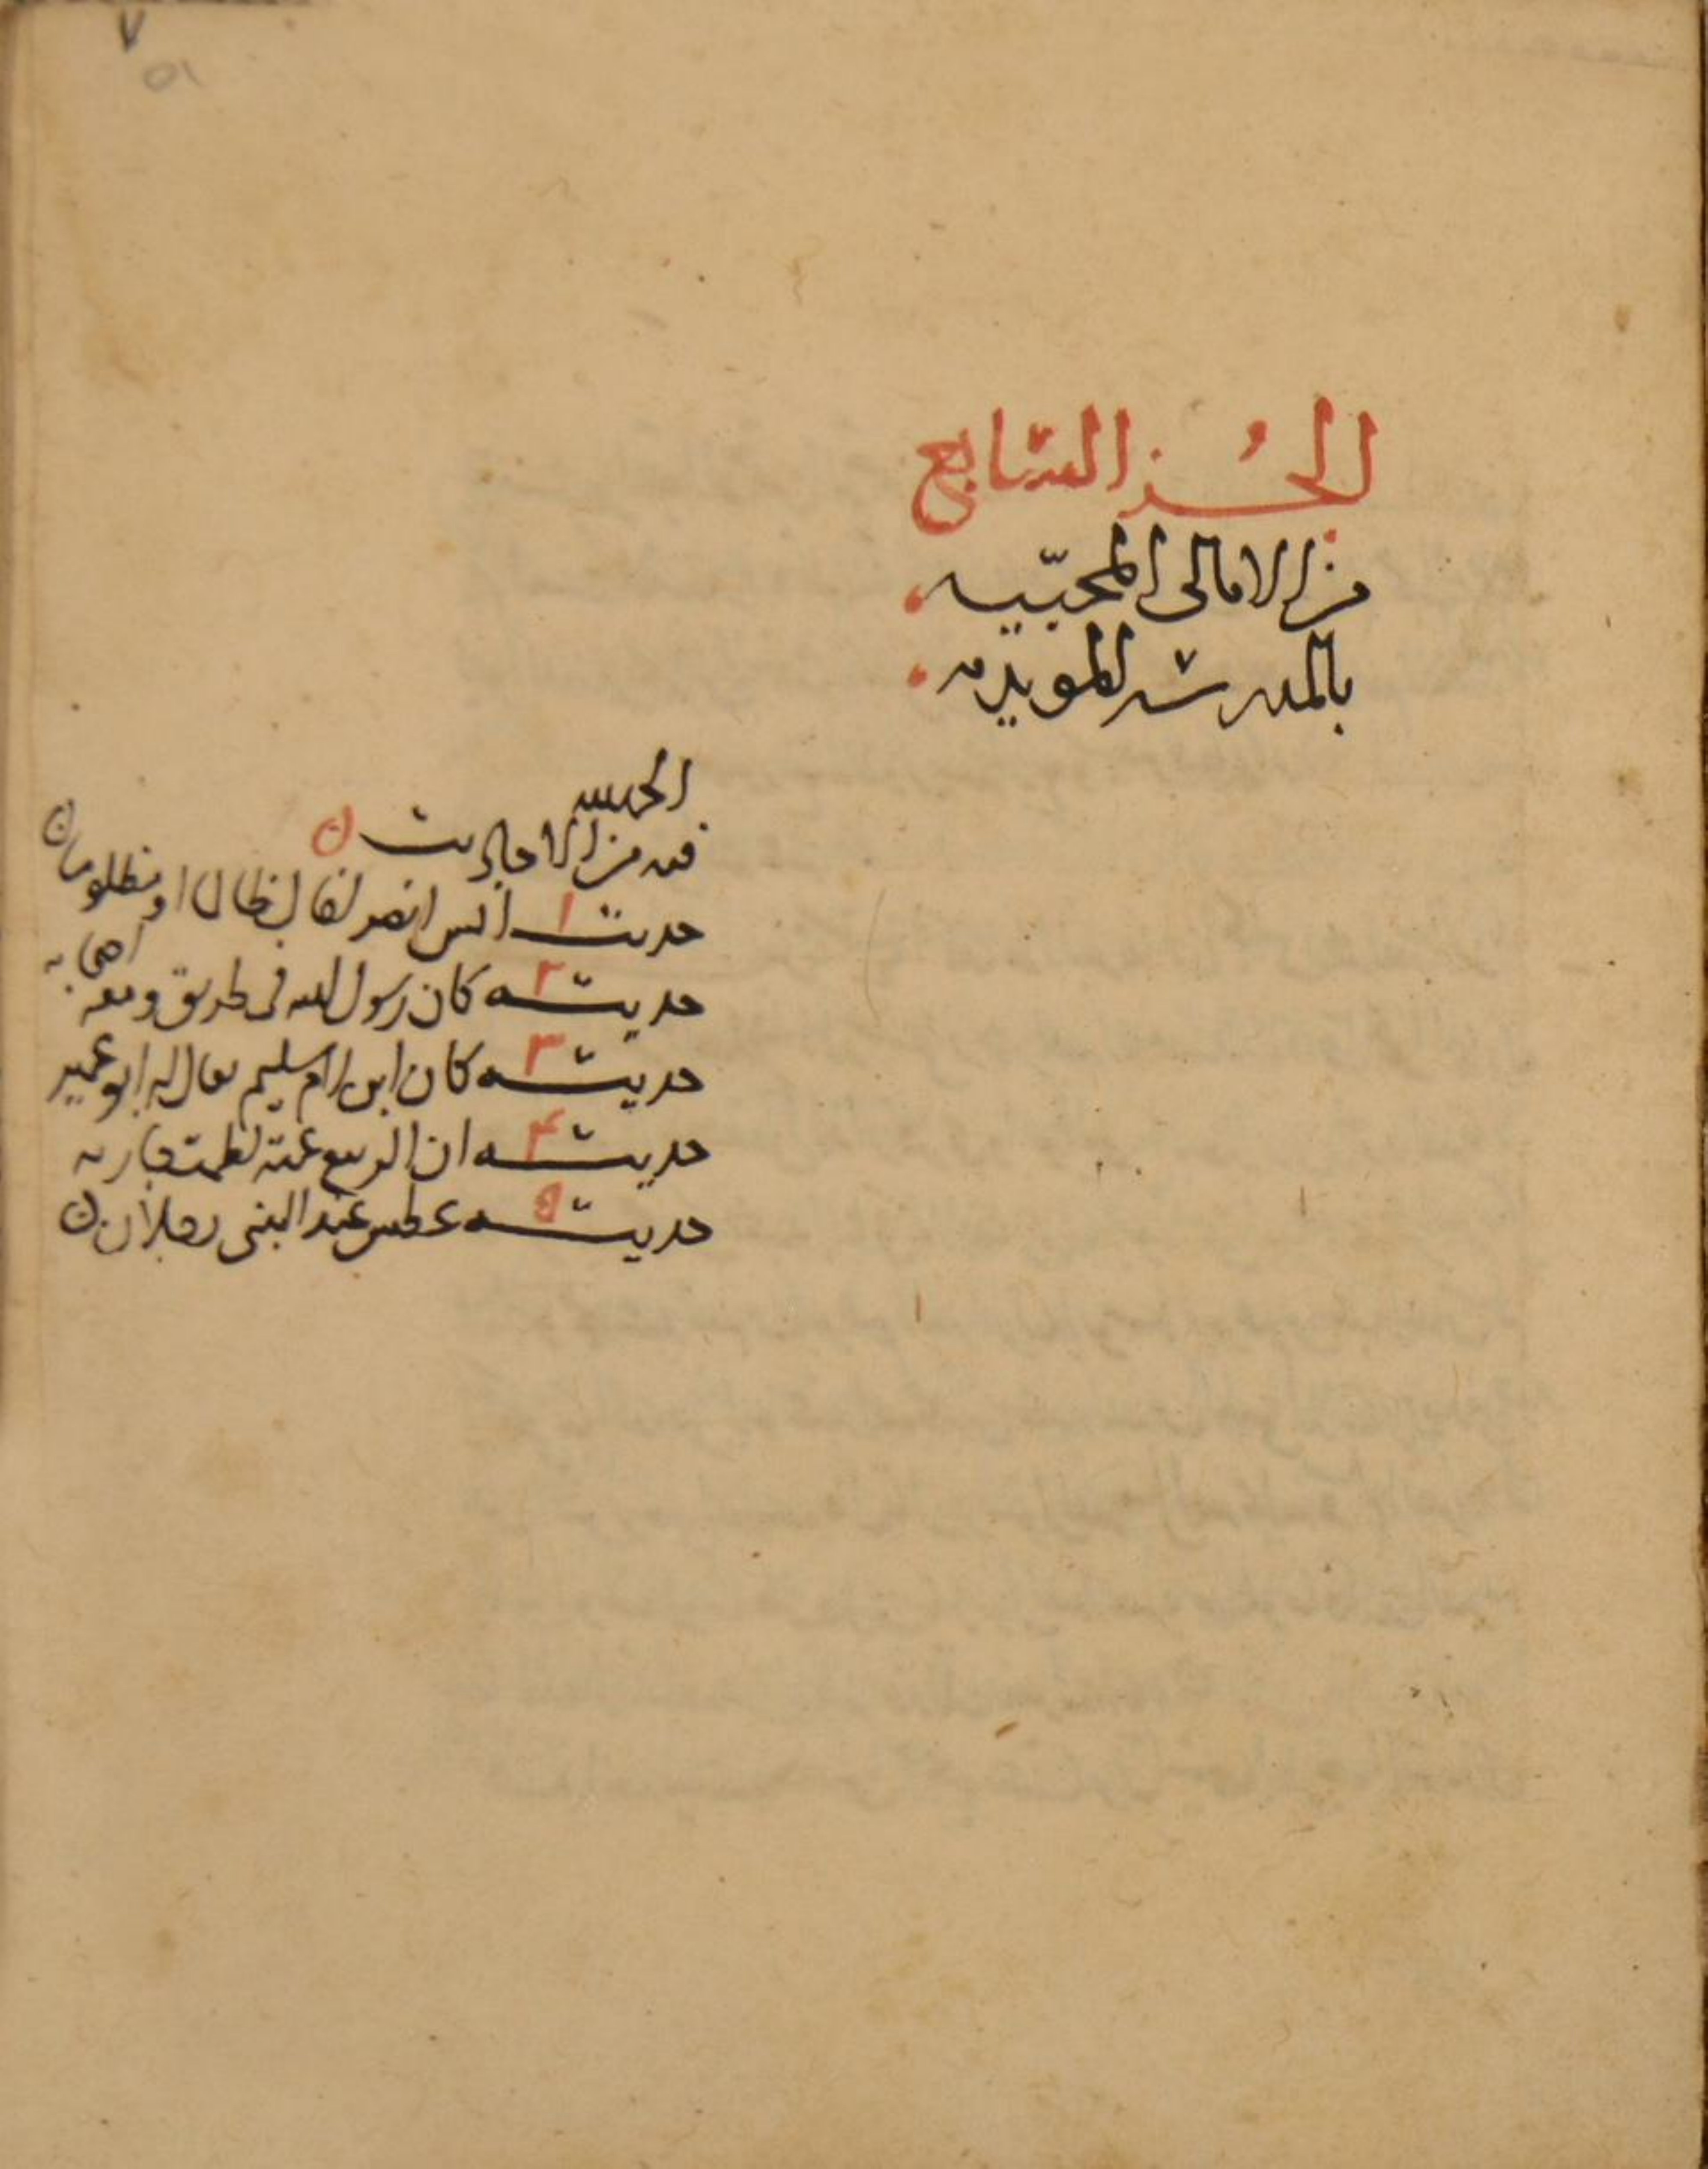 ٧
٥١
الجُز السابع
من الامالى المحبّيه
بالمدرسه المويديه
الحمد لله
فيه من الاحاديث
حديث ١ انس انصر اخاك ظالما او مظلوما
حديث ٢ كان رسول الله فى طريق ومعه اصحابه
حديث ٣ كان ابن لام سليم يقال له ابو عمير
حديث ٤ ان الربيع عمته لطمت جاريه
حديث ٥ عطس عند النبى رجلان